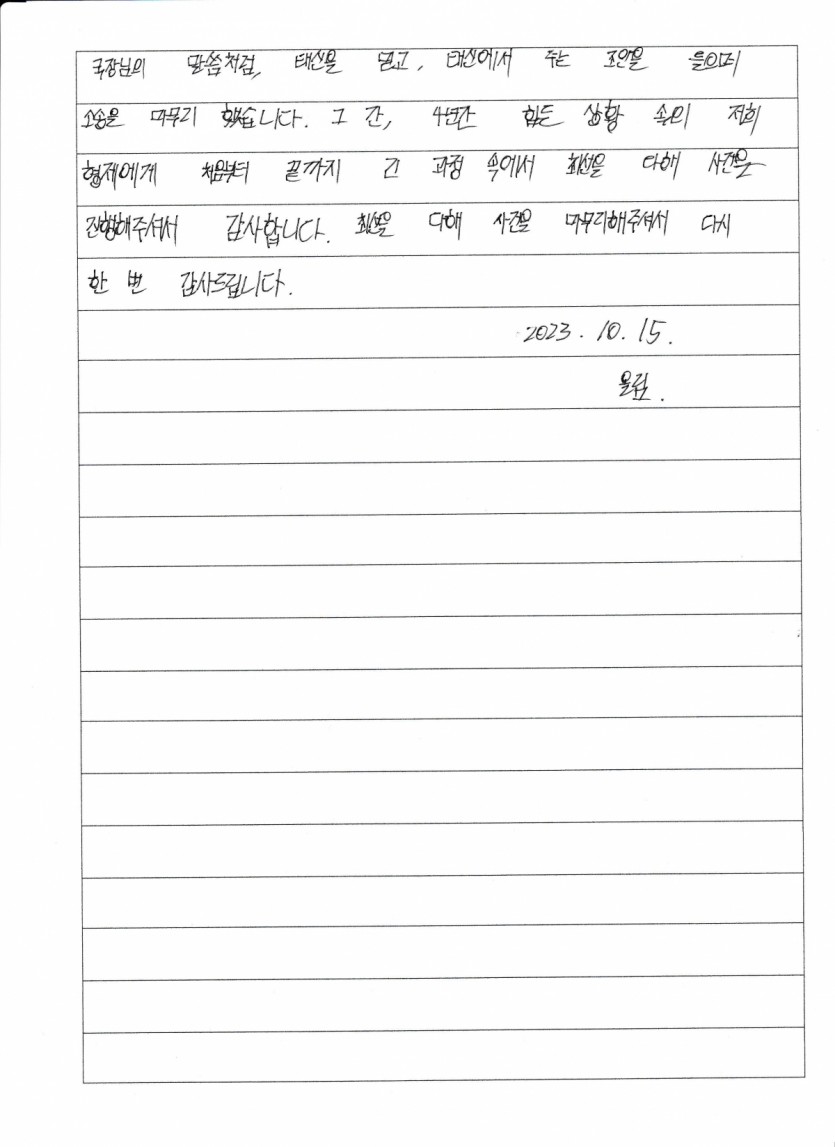 국장님의 말씀처럼, 태신을 믿고, 태신에서 주는 조언을 들으며
소송을 마무리 했습니다. 그 간, 4년간 힘든 상황 속의 저희
형제에게 처음부터 끝까지 긴 과정 속에서 최선을 다해 사건을
진행해주셔서 감사합니다. 최선을 다해 사건을 마무리해주셔서 다시
한 번 감사드립니다.
2023. 10. 15.
올림.